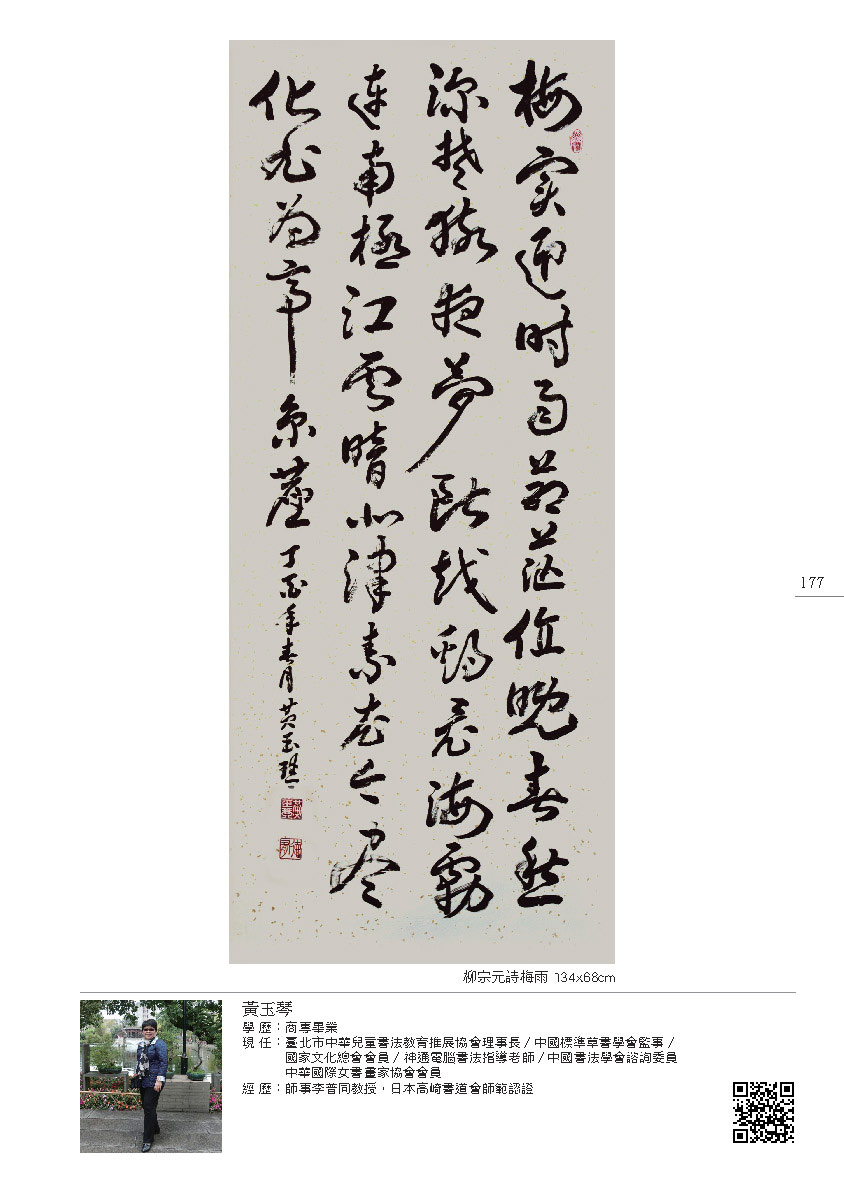 梅實迎時雨蒼茫值晚春愁
深楚猿夜夢斷越雞晨海霧
連南極江雲暗北津素衣今盡
化非為帝京塵 丁酉年春月黃玉琴
177
柳宗元詩梅雨 134x68cm
黃玉琴
學 歷：商專畢業
現 任：臺北市中華兒童書法教育推展協會理事長／中國標準草書學會監事／
國家文化總會會員／神通電腦書法指導老師／中國書法學會諮詢委員
中華國際女書畫家協會會員
經 歷：師事李普同教授，日本高崎書道會師範認證